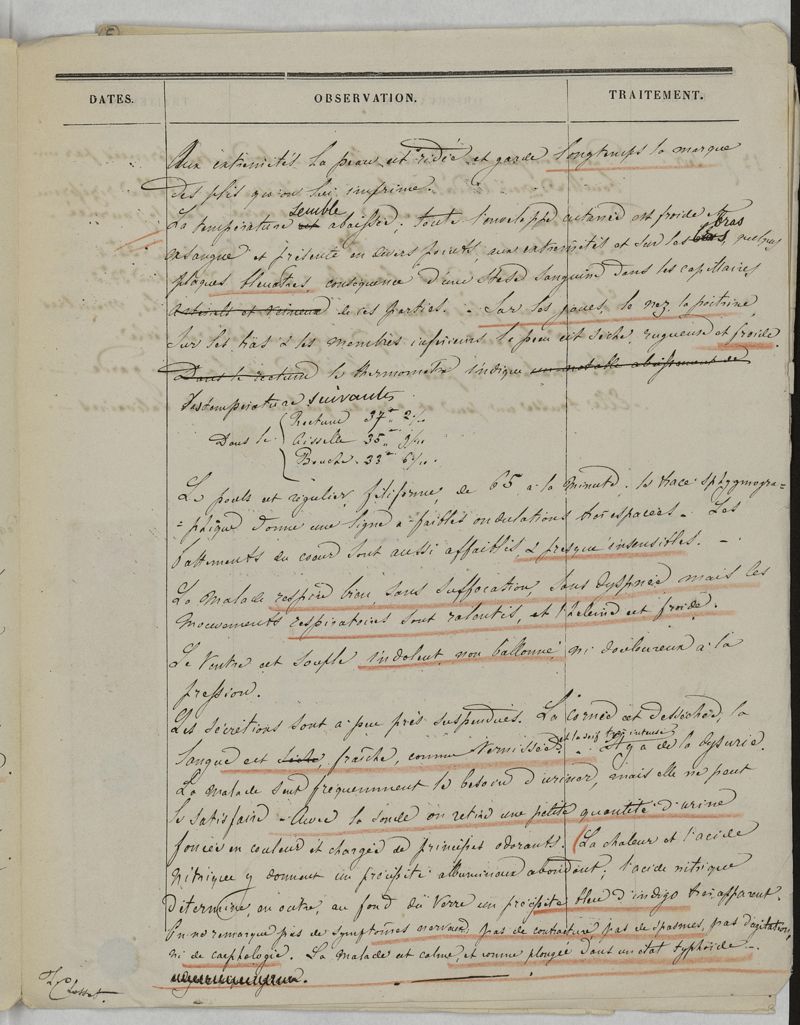 DATES. OBSERVATION. TRAITEMENT.
Aux extremités la peau est ridée et garde longtemps la marque
des plis qu'on lui imprime.
La température est semble abaissée; toute l'enveloppe cutanée est froide et
exsangue et présente en divers points, aux extremités et sur les bras, bras quelques
plaques bleuatres, conséquence d'une stase sanguine dans les capillaires
de ces parties. - Sur les joues, le nez, la poitrine,
sur les bras & les membres inférieurs la peau est sèche, rugueuse et froide.
Dans le rectum le thermomètre indique un notable abaissement de
les température suivantes
Dans le
Rectum 37° 2/10
Aisselle 35° 9/10
Bouche 33° 6/10.
Le pouls est régulier, filiforme, de 65 à la minute. le tracé sphygmogra=
=phique donne une ligne à faibles ondulations très espacées. Les
battements du coeur sont aussi affaiblis, & presque insensibles. -
La malade respire bien, sans suffocation, sans dyspnée mais les
mouvements respiratoires sont ralentis, et l'haleine est froide.
Le ventre est souple indolent, non ballonné, ni douloureux à la
pression.
Les sécrétions sont à peu près suspendues. La cornée est desséchée, la
langue est sèche, fraîche, comme vernissée, et la soif très intense. Il y a de la dysurie.
La malade sent fréquemment le besoin d'uriner, mais elle ne peut
le satisfaire - Avec la sonde on retire une petite quantité d'urine
foncée en couleur et chargée de principes odorants. (La chaleur et l'acide
nitrique y donnent un précipité albumineux abondant; l'acide nitrique
détermine, en outre, au fond du verre un précipité bleu d'indigo très apparent.
On ne remarque pas de symptômes nerveux, pas de contracture, pas de spasmes, pas d'agitation,
ni de carphologie. La malade est calme, et comme plongée dans un état typhoïde -.